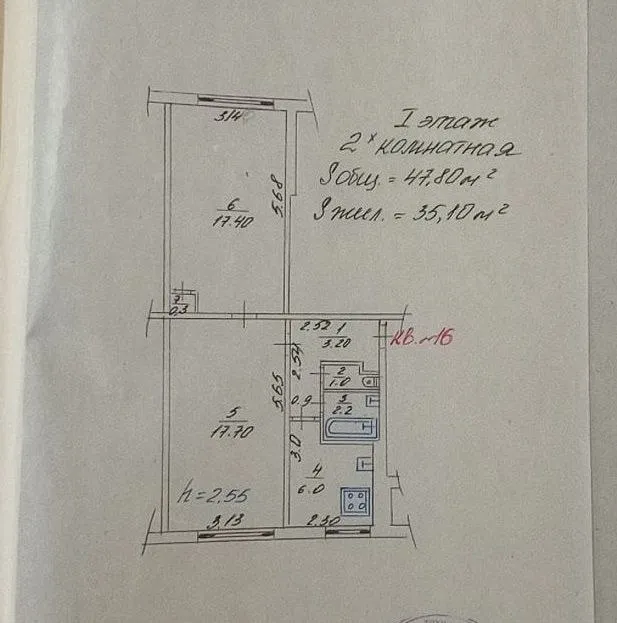 I этаж
2х комнатная
Sобщ. = 47,80 м²
Sжил. = 35,10 м²
3,14
6
17.40
5.68
7
0,3
2.52
1
3.20
кв. №16
2.54
2
1.0
5.65
0.9
3
2.2
5
17.70
3.0
4
6.0
h = 2.55
3,13
2.30